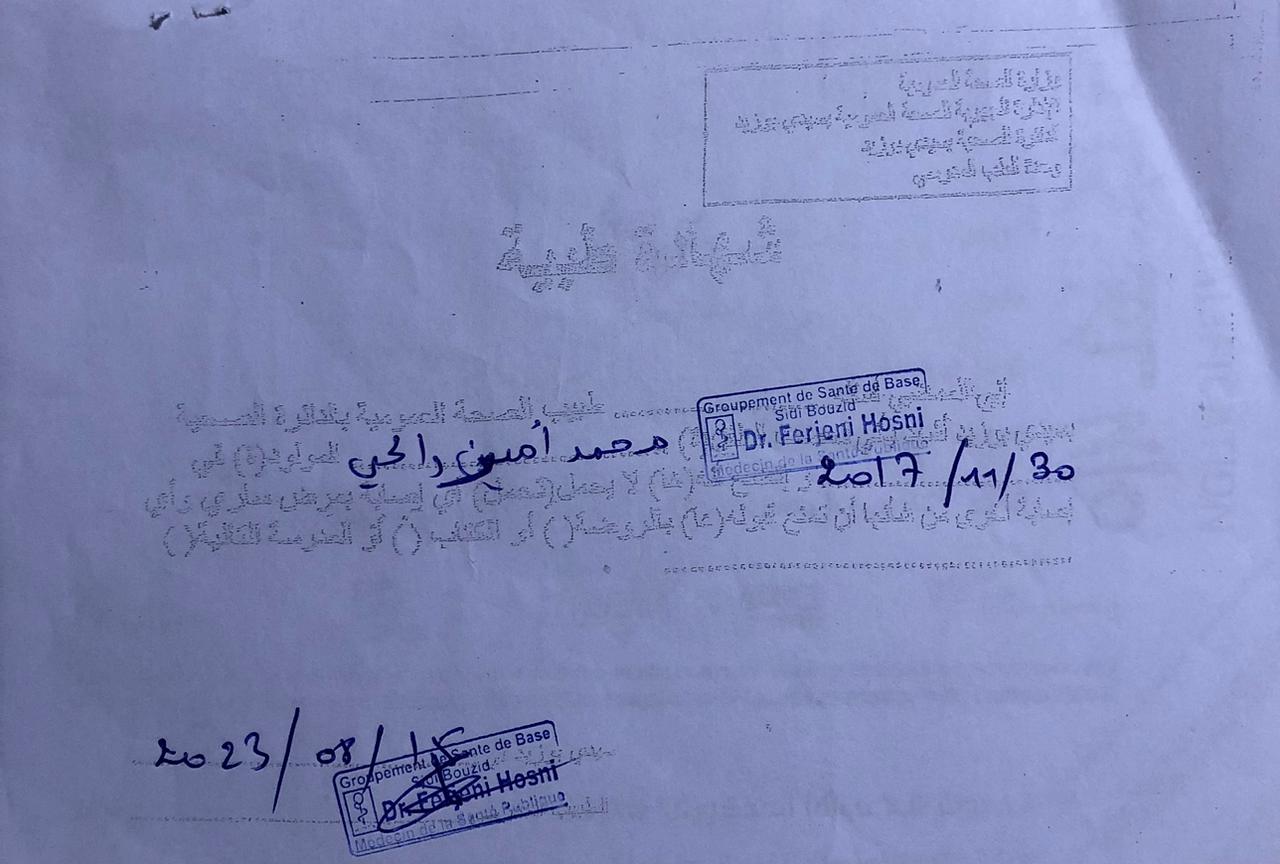 وزارة الصحة العمومية
الإدارة الجهوية للصحة العمومية بسيدي بوزيد
الدائرة الصحية بسيدي بوزيد
شهادة طبية
إني الممضي أسفله طبيب الصحة العمومية بالدائرة الصحية
Groupement de Sante de Base
Sidi Bouzid
Dr. Ferjeni Hosni
Medecin de la Santé Publique
بسيدي بوزيد محمد أمين المولود(ة) في
2017/11/30 لا يحمل(تحمل) أي إصابة بمرض ساري وأي
إصابة أخرى من شأنها أن تمنع قبوله(ها) بالروضة() أو الكتاب() أو المدرسة
سيدي بوزيد في 2023/08/
Groupement de Sante de Base
Sidi Bouzid
Dr. Ferjeni Hosni
Medecin de la Santé Publique
الطبيب